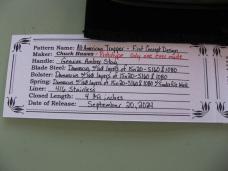 Pattern Name: All American Trapper - First Concept Design
Maker: Chuck Hawes - Prototype only one ever made
Handle: Genuine Amber Stag
Blade Steel: Damascus, layers of 15n20-5160 & 1080
Bolster: Damascus layers of 15n20-5160 & 1080
Spacer: Damascus layers of 15n20-5160 & 1080 File Work
Liner: 416 Stainless
Closed Length: 4 inches
Date of Release: September 20, 2021